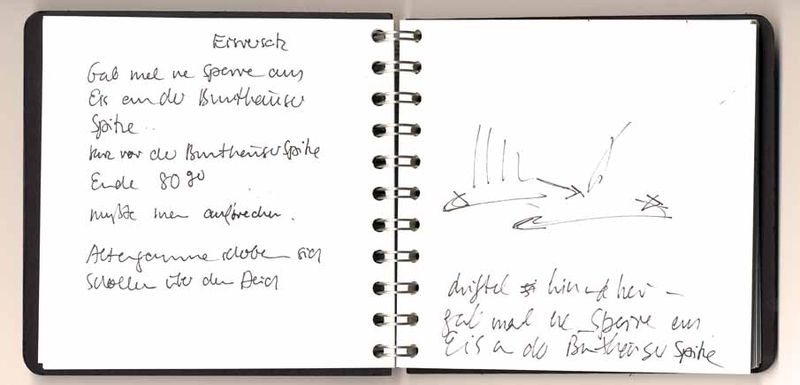 Gab mal ne Sperre aus
Eis an der Bunthäuser
Spitze..
kurz vor der Bunthäuser Spitze
Ende 80ger
mußte man aufbrechen.
Altengamme schoben sich
Schollen über den Deich
driftet hin und her –
gab mal ne Sperre aus
Eis an der Bunthäuser Spitze